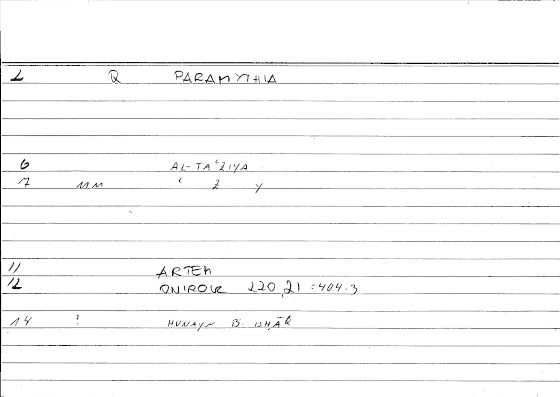 1 Q PARAMYTHIA
6 AL-TAʿZIYA
7 MM ʿ Z Y
11 ARTEM
12 ONIROCR 220,21 = 404.3
14 ? HUNAYN B. ISHĀQ